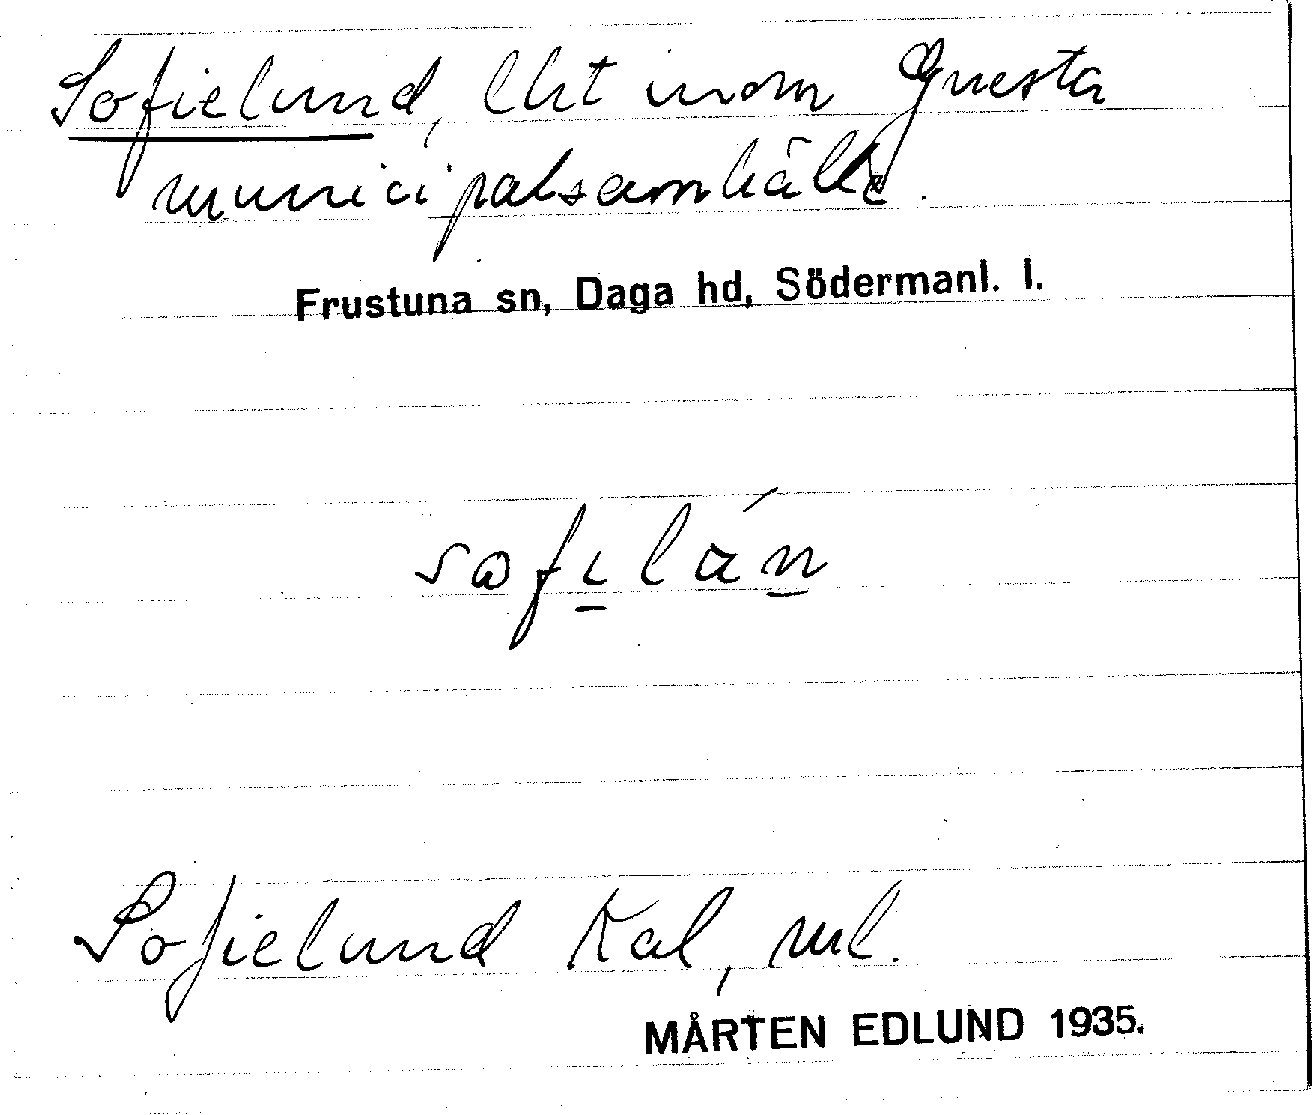 Sofielund, lht inom Gnesta
municipalsamhälle.
Frustuna sn, Daga hd, Södermanl. l.
sofilán
Sofielund Kal, ml.
MÅRTEN EDLUND 1935.